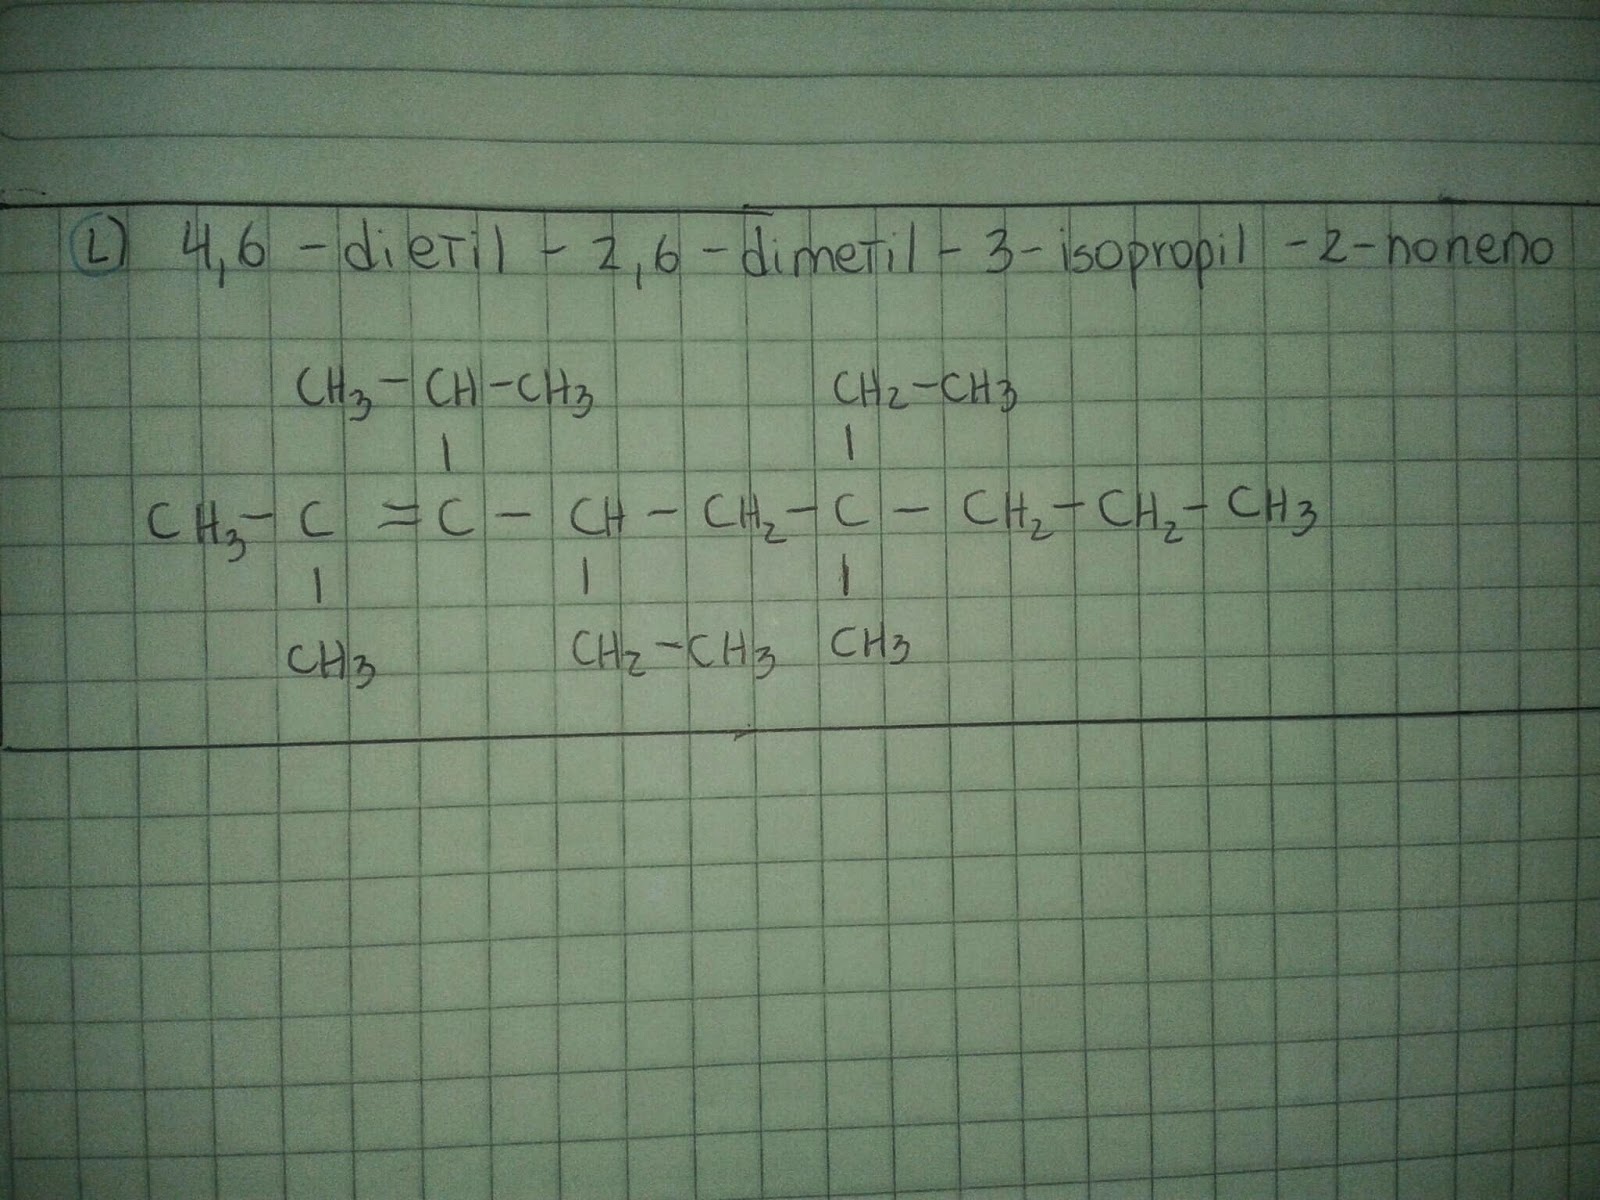 L) 4,6-dietil-2,6-dimetil-3-isopropil-2-noneno
CH3-CH-CH3 CH2-CH3
| |
CH3-C=C-CH-CH2-C-CH2-CH2-CH3
| | |
CH3 CH2-CH3 CH3